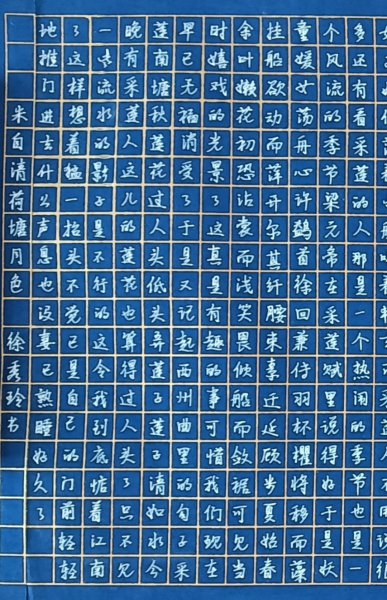 多还有看采莲的人那是一个热闹的季节也是一
个风流的季节梁元帝在采莲赋里说得好于是妖
童媛女荡舟心许鹢首徐回兼传羽杯櫂将移而藻
挂船欲动而萍开尔其纤腰束素迁延顾步夏始春
余叶嫩花初恐沾裳而浅笑畏倾船而敛裾可见当
时嬉戏的光景了这真是有趣的事可惜我们现在
早已无福消受了于是又记起西州曲里的句子采
莲南塘秋莲花过人头低头弄莲子莲子清如水今
晚有采莲人这儿的莲花也算得过人头了只不见
一些流水的影子是不行的这令我到底惦着江南
了这样想着猛一抬头不觉已是自己的门前轻轻
地推门进去什么声息也没妻已熟睡好久了
朱自清荷塘月色 徐秀玲书